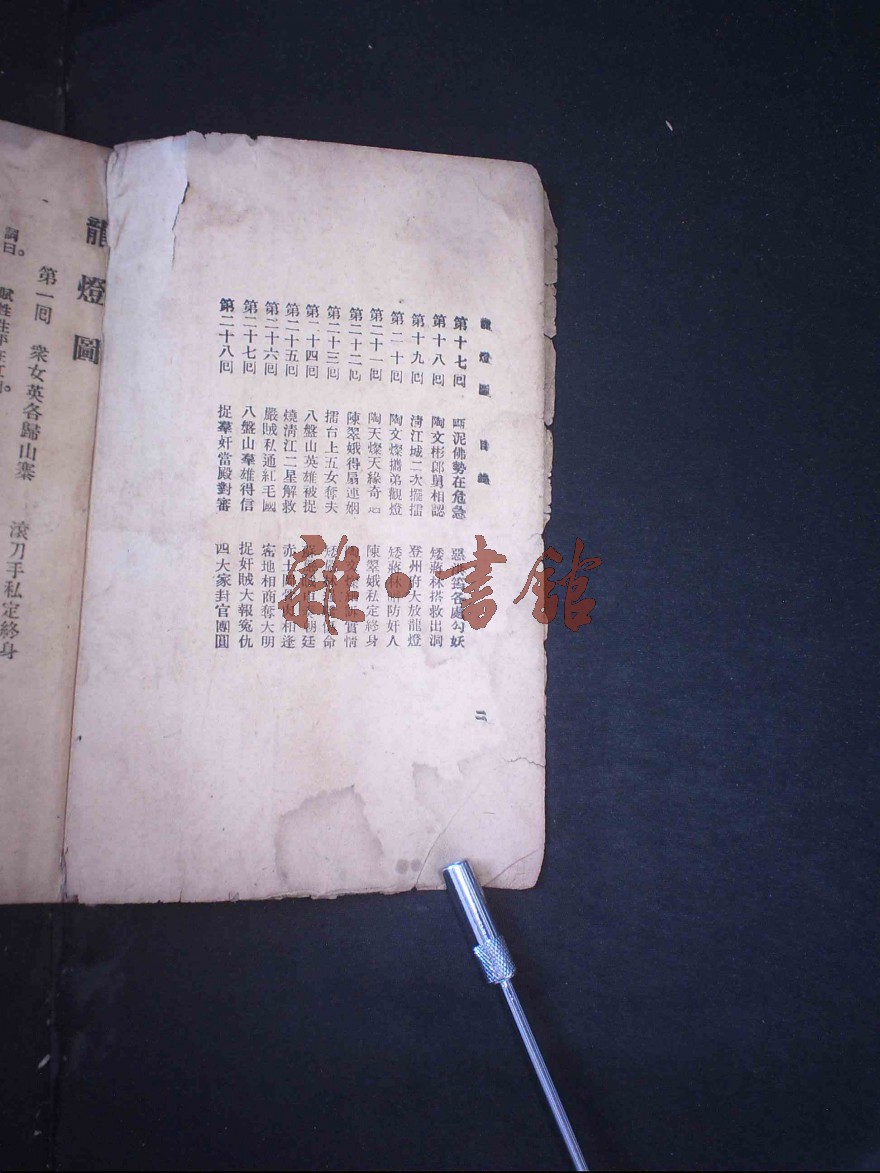 龍燈圖 目錄
第十七回 陶泥佛勢在危急 惡 各處勾妖
第十八回 陶文彬郎舅相認 矮蔣林搭救出洞
第十九回 淸江城二次擺擂 登州府大放龍燈
第二十回 陶文燦攜弟觀燈 矮蔣林 防奸人
第二十一回 陶天燦天緣奇 陳翠娥私定終身
第二十二回 陳翠娥得扇連姻 實情
第二十三回 擂台上五女奪夫 矮 命
第二十四回 八盤山英雄被捉 朝廷
第二十五回 燒淸江二星解救 赤土 相逢
第二十六回 嚴賊私通紅毛國 密地相商奪大明
第二十七回 八盤山羣雄得信 捉奸賊大報冤仇
第二十八回 捉羣奸當殿對審 四大家封官團圓
二
龍燈圖
第一回 衆女英各歸山寨 滾刀手私定終身
詞曰。
雜·書館